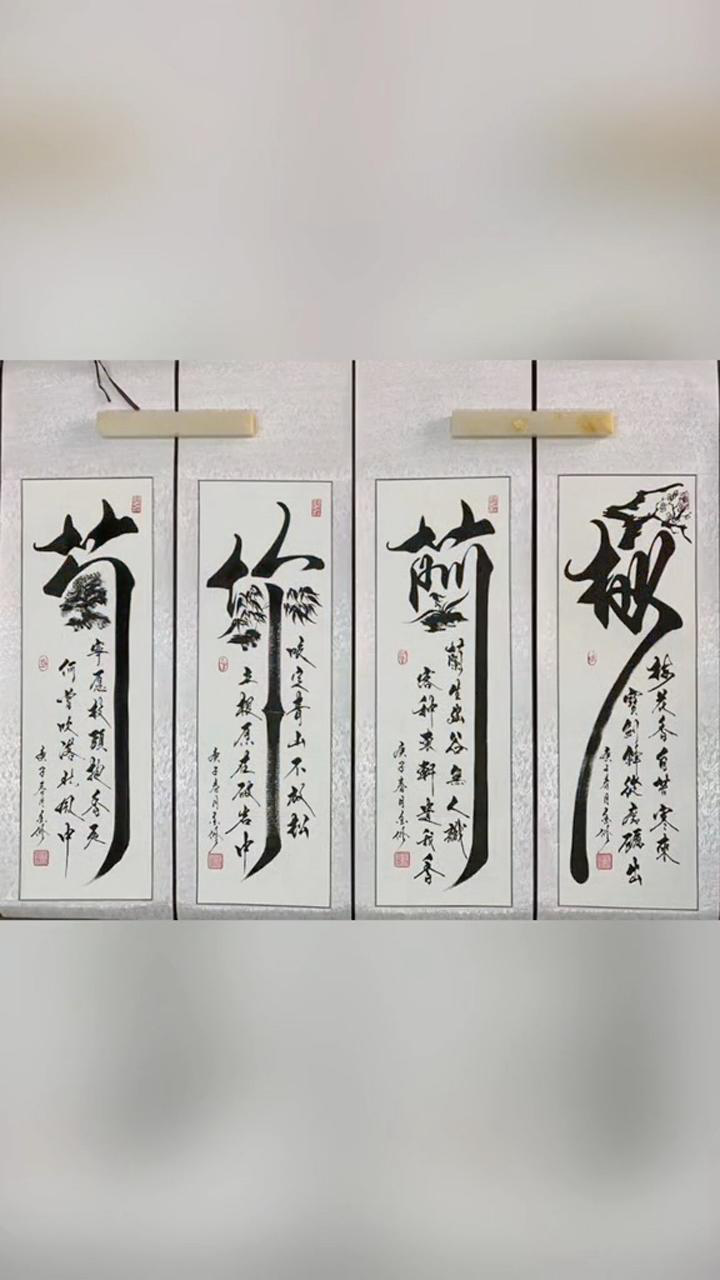 梅
梅花香自苦寒來
寶劍鋒從磨礪出
庚子春月
蘭
蘭生幽谷無人識
客种東軒遺我香
庚子春月
竹
咬定青山不放松
立根原在破岩中
庚子春月
菊
寧愿枝頭抱香死
何曾吹落北風中
庚子春月